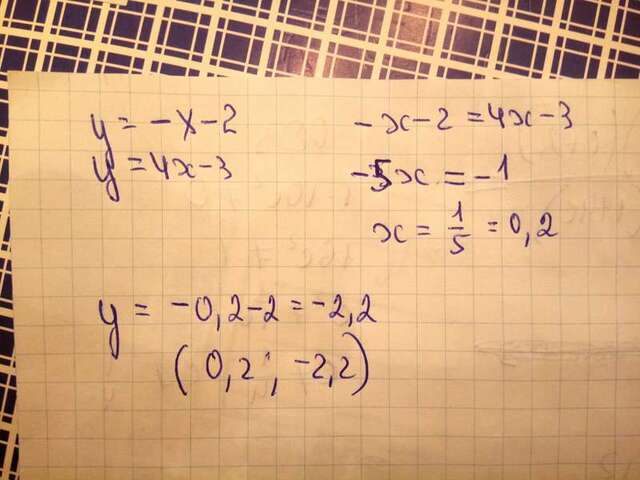 y = -x-2
y = 4x-3
-x-2 = 4x-3
-5x = -1
x = 1/5 = 0,2
y = -0,2-2 = -2,2
(0,2; -2,2)